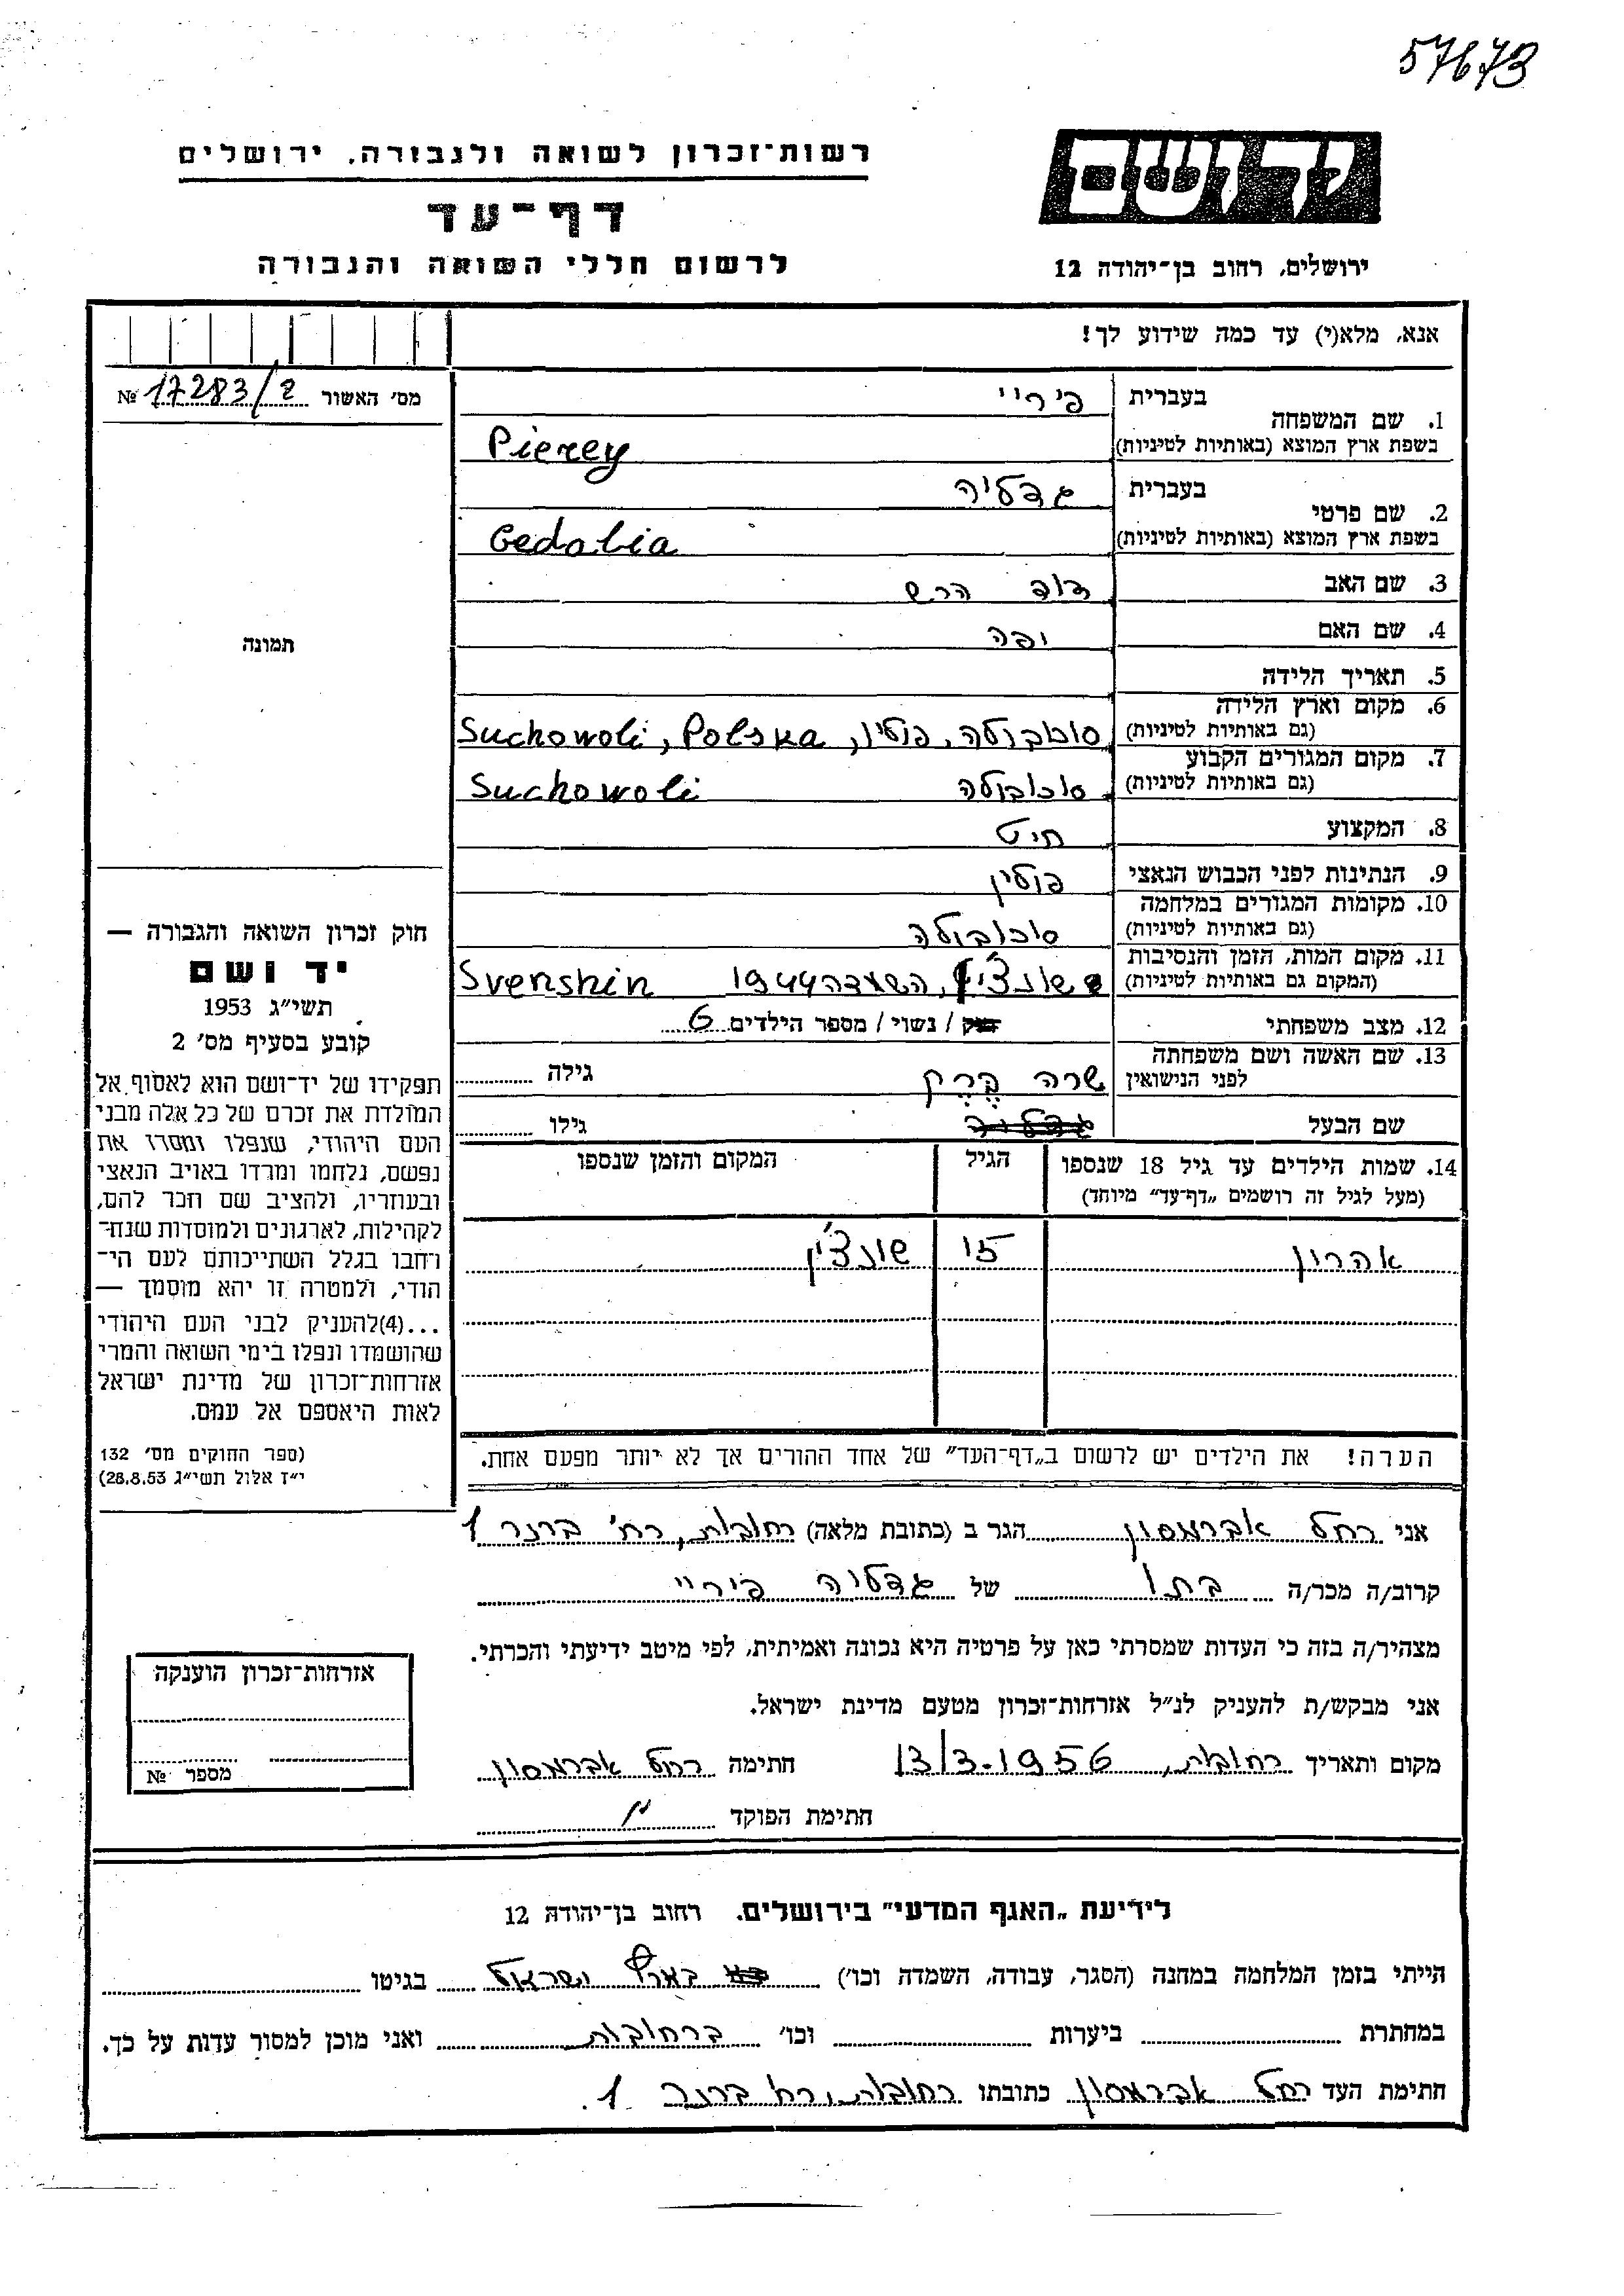 57673
רשות-זכרון לשואה ולגבורה, ירושלים
ידושם
דף-עד
לרשום חללי השואה והגבורה
ירושלים, רחוב בן-יהודה 12
אנא, מלא(י) עד כמה שידוע לך!
מס׳ האשור 17283/2 №
1. שם המשפחה
בעברית פירײ
בשפת ארץ המוצא (באותיות לטיניות) Pierey
2. שם פרטי
בעברית גדליה
בשפת ארץ המוצא (באותיות לטיניות) Gedalia
3. שם האב דוד הרש
4. שם האם יפה
5. תאריך הלידה
6. מקום וארץ הלידה
(גם באותיות לטיניות) סוכובולה, פולין, Suchowoli, Polska
7. מקום המגורים הקבוע
(גם באותיות לטיניות) סוכובולה Suchowoli
8. המקצוע חיט
9. הנתינות לפני הכבוש הנאצי פולין
10. מקומות המגורים במלחמה
(גם באותיות לטיניות) סוכובולה
11. מקום המות, הזמן והנסיבות
(המקום גם באותיות לטיניות) שונצ׳ין, השמדה 1944 Svenshin
12. מצב משפחתי רוק / נשוי / מספר הילדים 6
13. שם האשה ושם משפחתה
לפני הנישואין שרה גילה
שם הבעל גדליה גילו
14. שמות הילדים עד גיל 18 שנספו
(מעל לגיל זה רושמים „דף-עד״ מיוחד)
הגיל
המקום והזמן שנספו
אהרון 15 שונצ׳ין
הערה! את הילדים יש לרשום ב„דף-העד״ של אחד ההורים אך לא יותר מפעם אחת.
תמונה
חוק זכרון השואה והגבורה —
יד ושם
תשי״ג 1953
קובע בסעיף מס׳ 2
תפקידו של יד-ושם הוא לאסוף אל
המולדת את זכרם של כל אלה מבני
העם היהודי, שנפלו ומסרו את
נפשם, נלחמו ומרדו באויב הנאצי
ובעוזריו, ולהציב שם וזכר להם,
לקהילות, לארגונים ולמוסדות שנח-
רחבו בגלל השתייכותם לעם הי-
הודי, ולמטרה זו יהא מוסמך —
...(4)להעניק לבני העם היהודי
שהושמדו ונפלו בימי השואה והמרי
אזרחות-זכרון של מדינת ישראל
לאות היאספם אל עמם.
(ספר החוקים מס׳ 132
י״ז אלול תשי״ג 28.8.53)
אני רחל אברמסון הגר ב (כתובת מלאה) רחובות, רח׳ ברנר 1
קרוב/ה מכר/ה בתו של גדליה פירײ
מצהיר/ה בזה כי העדות שמסרתי כאן על פרטיה היא נכונה ואמיתית, לפי מיטב ידיעתי והכרתי.
אני מבקש/ת להעניק לנ״ל אזרחות-זכרון מטעם מדינת ישראל.
מקום ותאריך רחובות, 13/3.1956 חתימה רחל אברמסון
חתימת הפוקד
אזרחות-זכרון הוענקה
מספר №
לידיעת „האגף המדעי״ בירושלים. רחוב בן-יהודה 12
הייתי בזמן המלחמה במחנה (הסגר, עבודה, השמדה וכו׳) בארץ ישראל בגיטו
במחתרת ביערות וכו׳ ברחובות ואני מוכן למסור עדות על כך.
חתימת העד רחל אברמסון כתובתו רחובות, רח׳ ברנר 1.